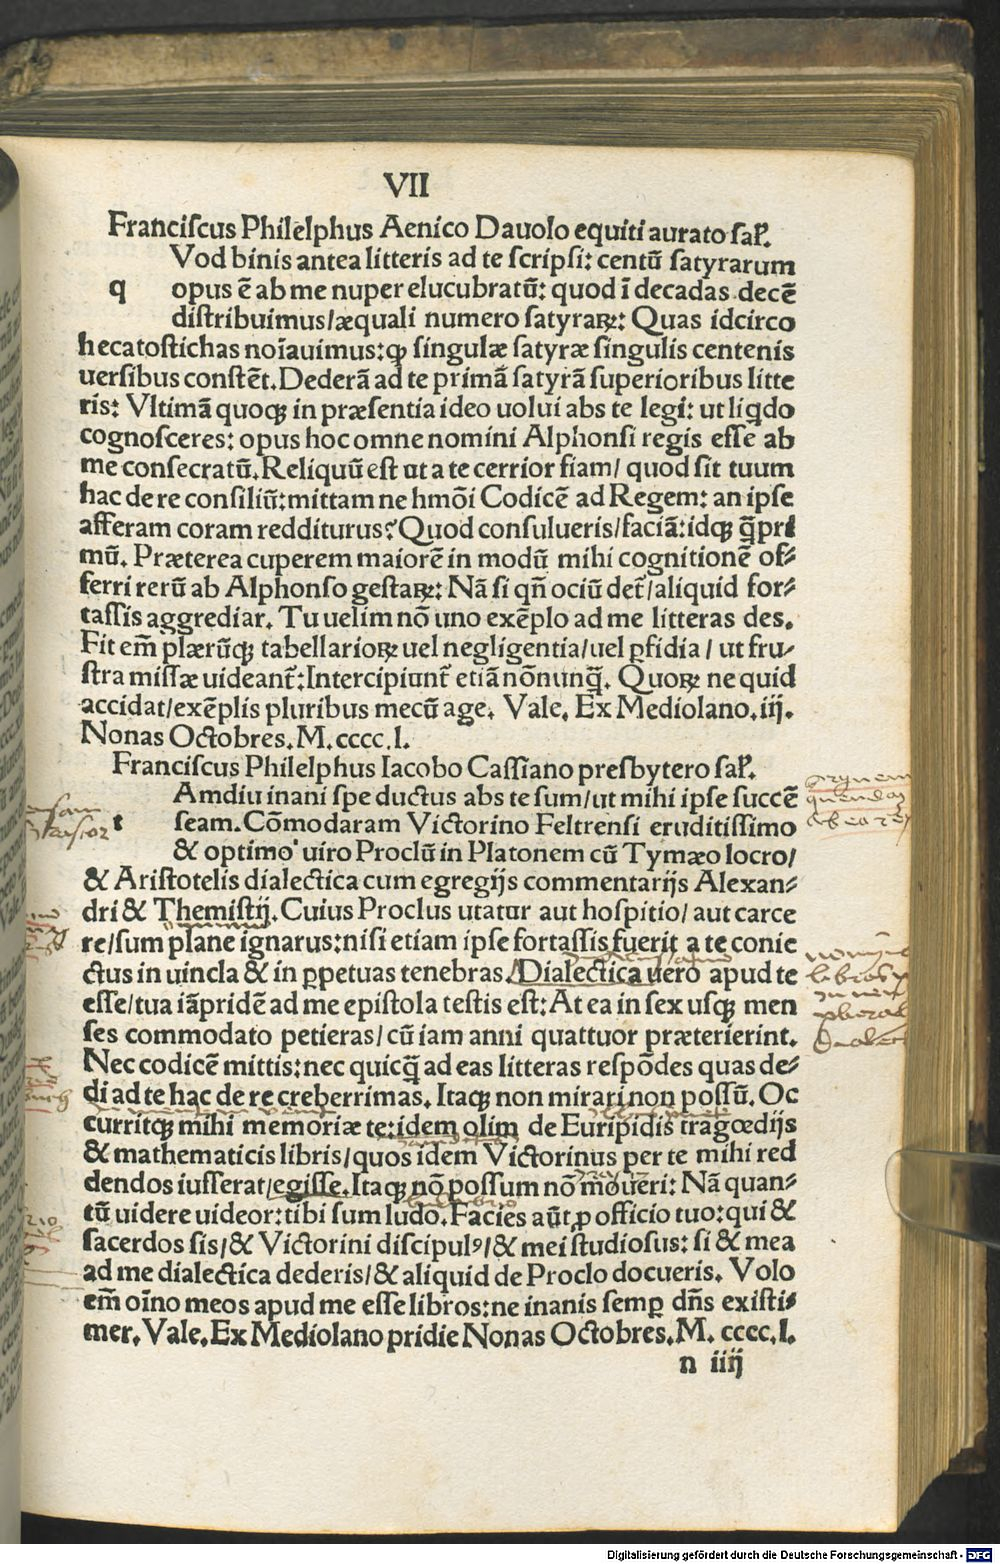 VII
Franciscus Philelphus Aenico Dauolo equiti aurato sal̃.
Vod binis antea litteris ad te scripsi: centũ satyrarum
q opus ẽ ab me nuper elucubratũ: quod ĩ decadas decẽ
distribuimus/æquali numero satyraꝝ: Quas idcirco
hecatostichas noĩauimus: ꝙ singulæ satyræ singulis centenis
uersibus constẽt. Dederã ad te primã satyrã superioribus litte
ris: Vltimã quoqꝫ in præsentia ideo uolui abs te legi: ut liq̇do
cognosceres: opus hoc omne nomini Alphonsi regis esse ab
me consecratũ. Reliquũ est ut a te cerrior fiam/ quod sit tuum
hac de re consiliũ: mittam ne hmõi Codicẽ ad Regem: an ipse
afferam coram redditurus? Quod consulueris/faciã: idqꝫ q̃pri
mũ. Præterea cuperem maiorẽ in modũ mihi cognitionẽ of⸗
ferri rerũ ab Alphonso gestaꝝ: Nã si qñ ociũ det̃/aliquid for⸗
tassis aggrediar. Tu uelim nõ uno exẽplo ad me litteras des.
Fit em̃ plærũqꝫ tabellarioꝝ uel negligentia/uel ꝑfidia/ ut fru⸗
stra missæ uideant̃: Intercipiunt̃ etiã nõnunq̃. Quoꝝ ne quid
accidat/exẽplis pluribus mecũ age. Vale. Ex Mediolano. iij.
Nonas Octobres. M. cccc. l.
Franciscus Philelphus Iacobo Cassiano presbytero sal̃.
Amdiu inani spe ductus abs te sum/ut mihi ipse succẽ
t seam. Cõmodaram Victorino Feltrensi eruditissimo
& optimo uiro Proclũ in Platonem cũ Tymæo locro/
& Aristotelis dialectica cum egregijs commentarijs Alexan⸗
dri & Themistij. Cuius Proclus utatur aut hospitio/ aut carce
re/sum plane ignarus: nisi etiam ipse fortassis fuerit a te conie
ctus in uincla & in ꝑpetuas tenebras. Dialectica uero apud te
esse/tua iãpridẽ ad me epistola testis est: At ea in sex usqꝫ men
ses commodato petieras/ cũ iam anni quattuor præterierint.
Nec codicẽ mittis: nec quicq̃ ad eas litteras respõdes quas de⸗
di ad te hac de re creberrimas. Itaqꝫ non mirari non possũ. Oc
curritqꝫ mihi memoriæ te: idem olim de Euripidis tragœdijs
& mathematicis libris/quos idem Victorinus per te mihi red
dendos iusserat/egisse. Itaqꝫ nõ possum nõ mouẽri: Nã quan⸗
tũ uidere uideor: tibi sum ludo. Facies aũt ꝓ officio tuo: qui &
sacerdos sis/& Victorini discipulꝰ/& mei studiosus: si & mea
ad me dialectica dederis/& aliquid de Proclo docueris. Volo
em̃ oĩno meos apud me esse libros: ne inanis semꝑ dñs existi⸗
mer. Vale. Ex Mediolano pridie Nonas Octobres. M. cccc. l.
n iiij
Digitalisierung gefördert durch die Deutsche Forschungsgemeinschaft - DFG